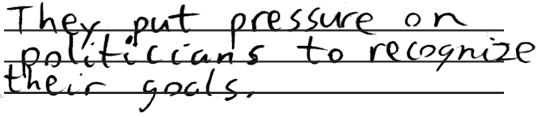 They put pressure on
politicians to recognize
their goals.